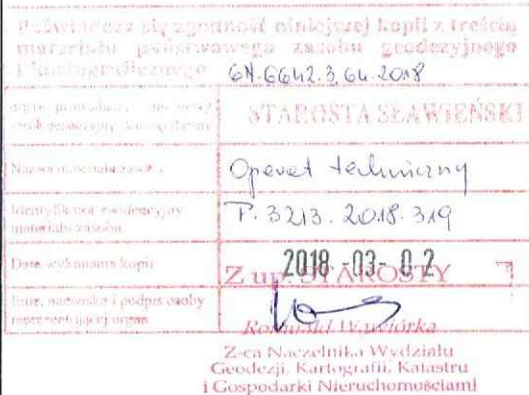 Poświadcza się zgodność niniejszej kopii z treścią
materiału państwowego zasobu geodezyjnego
i kartograficznego GN.6642.3.64.2018
STAROSTA SŁAWIEŃSKI
Nazwa materiału zasobu
Operat techniczny
Identyfikator ewidencyjny
materiału zasobu
P.3213.2018.319
Data wykonania kopii
2018-03-02
Z up. STAROSTY
Imię, nazwisko i podpis osoby
reprezentującej organ
Romuald Wawiórka
Z-ca Naczelnika Wydziału
Geodezji, Kartografii, Katastru
i Gospodarki Nieruchomościami